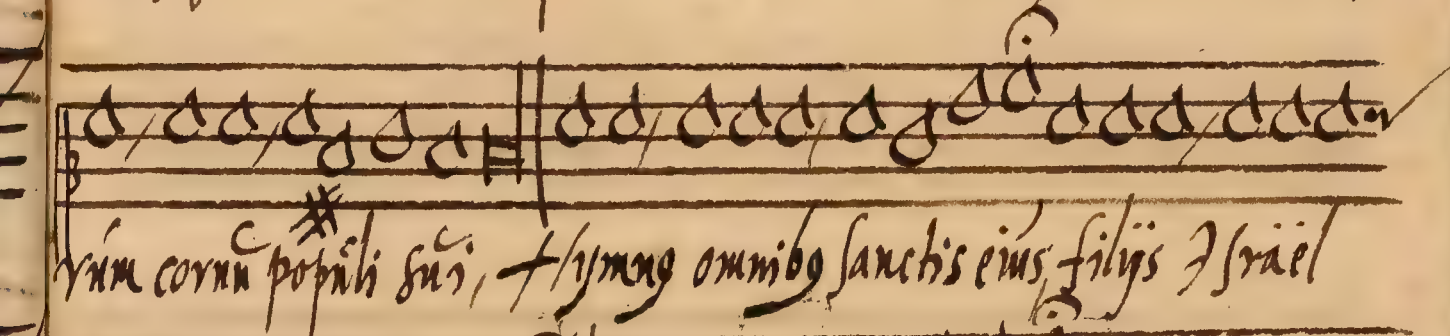 rum cornũ populi sũi, Hymnꝰ omnibꝰ sanctis eius, filijs Israël